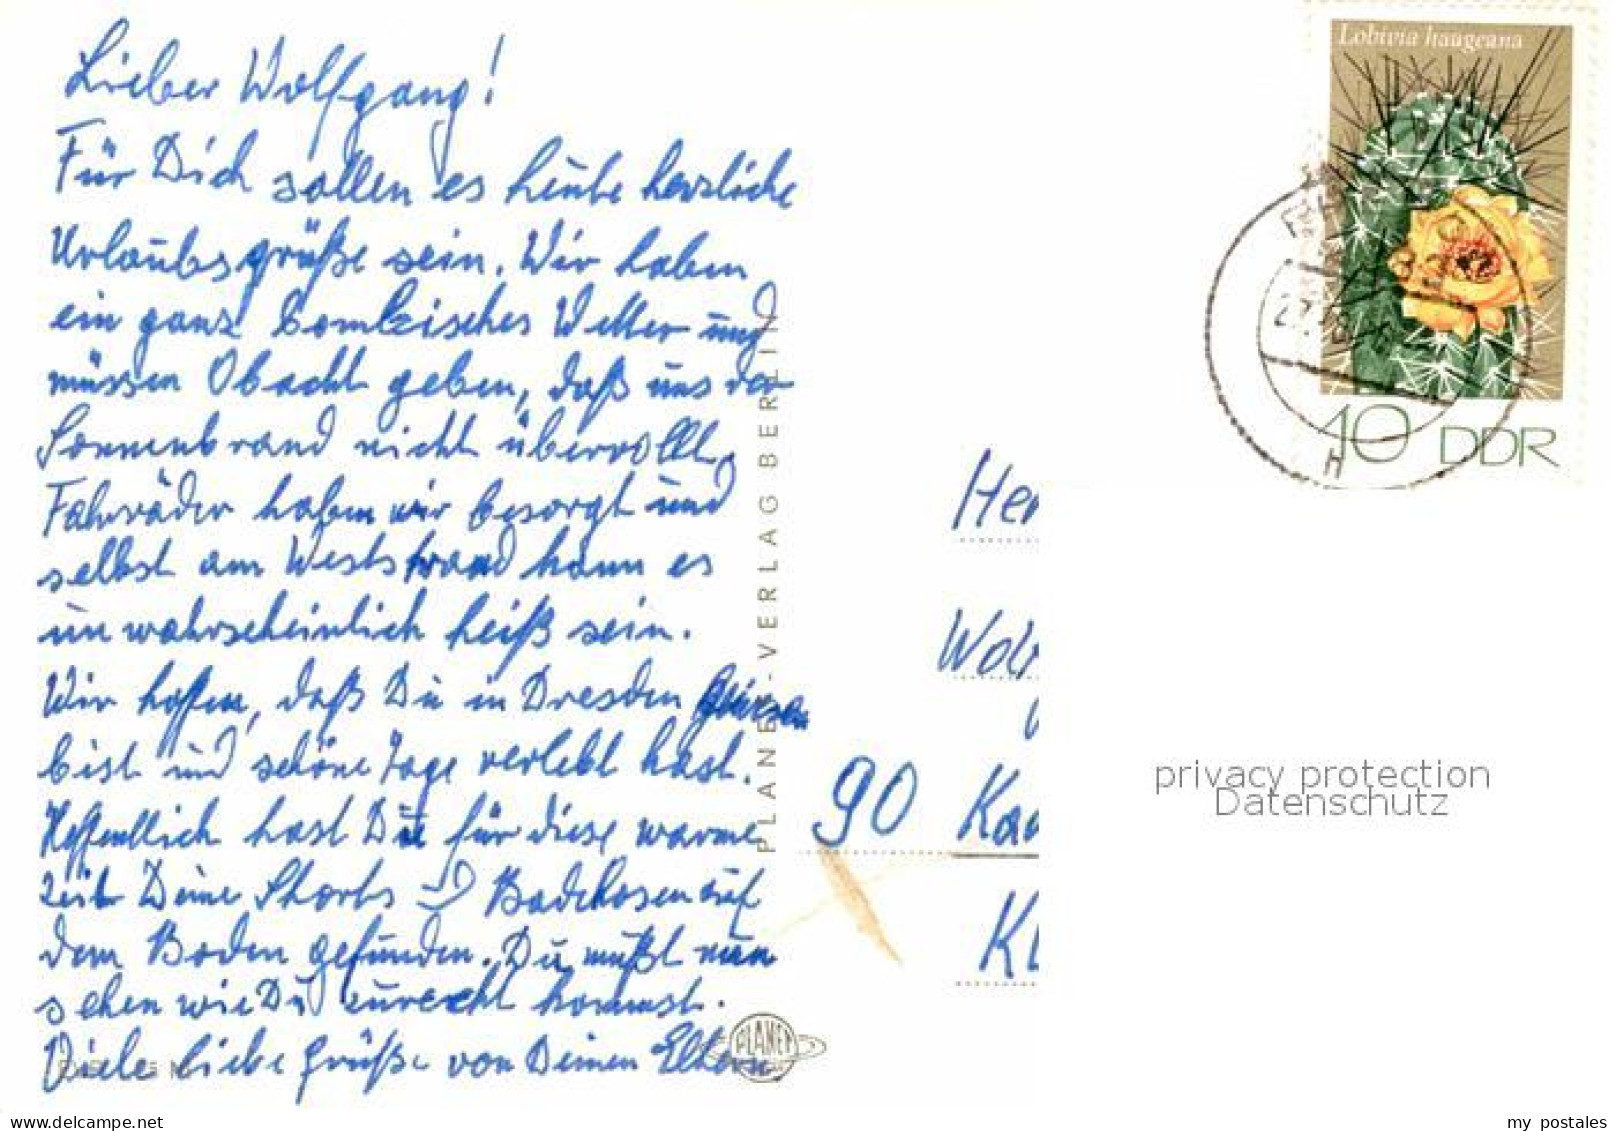 Lieber Wolfgang!
Für Dich sollen es heute herzliche
Urlaubsgrüße sein. Wir haben
ein ganz bombisches Wetter und
müssen Obacht geben, daß uns der
Sonnenbrand nicht übervollt.
Fahrräder haben wir besorgt und
selbst am Weststrand kann es
unwahrscheinlich heiß sein.
Wir hoffen, daß Du in Dresden
bist und schöne Tage verlebt hast.
Hoffentlich hast Du für diese warme
Zeit Deine Shorts Badehosen auf
dem Boden gefunden. Du mußt nun
sehen wie Du zurecht kommst.
Viele liebe Grüße von Deinen Eltern
PLANET-VERLAG BERLIN
PLANET
Lobivia haageana
10 DDR
27.
h
Her
Wolf
90 Ka
KL
privacy protection
Datenschutz
delcampe.net
my_postales